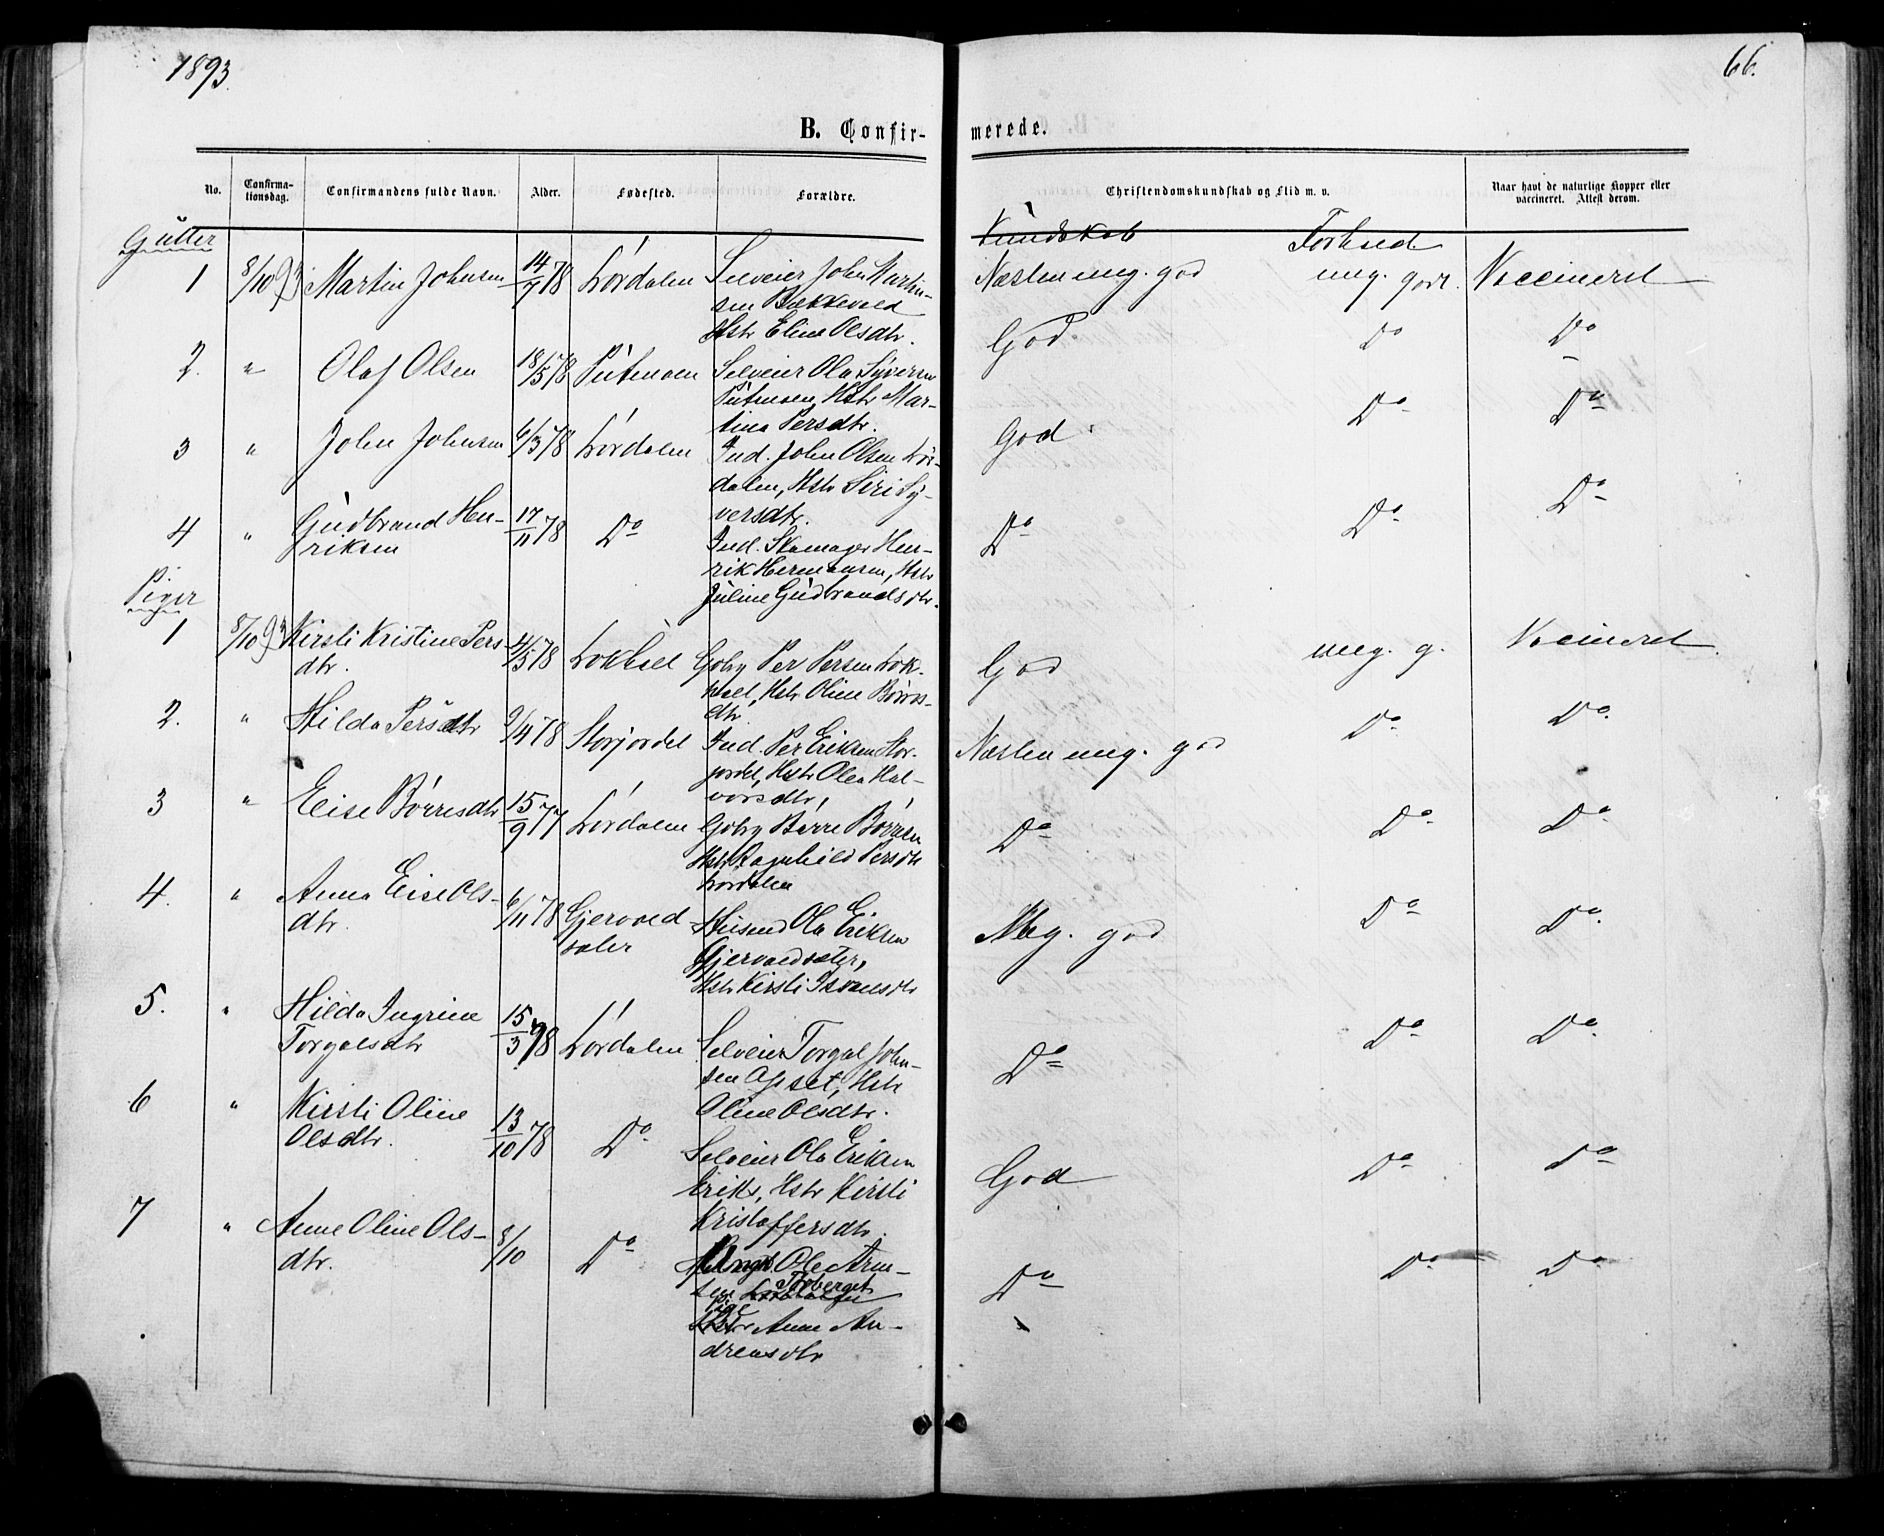 1893.
66.
B. Confir-
merede.
No.
Confirma-
tionsdag.
Confirmandens fulde Navn.
Alder.
Fødested.
Forældre.
Christendomskundskab og Flid m. v.
Naar havt de naturlige Kopper eller
vaccineret. Attest derom.
Gutter
Kundskab
Forhold.
1 8/10 93 Martin Johnsen 14/7 78 Lordalen Selveier John Martin-
sen Bækkevold
Hstr Eline Olsdtr.
Næsten meg. god meg. godt. Vaccineret
2. " Olaf Olsen 18/5 78 Putmoen Selveier Ola Syversen
Putmoen, Hstr Mar-
tina Persdtr.
God Do Do
3 " John Johnsen 6/3 78 Lordalen Ind. John Olsen Lor-
dalen, Hstr Siri Sy-
versdtr.
God Do Do
4 " Gudbrand Hen-
riksen 17/11 78 Do
Ind. Skomager Hen-
rik Hermansen, Hstr
Juline Gudbrandsdtr.
Do Do Do
Piger
1 8/10 93 Kirsti Kristine Pers
dtr. 4/5 78
Gbrg Per Persen Lok-
Hstr Oline Børres-
dtr
God meg. g. Vaccineret
2. " Hilda Persdtr 9/4 78 Storjordet Ind. Per Eriksen Stor-
jordet, Hstr Olea Hal-
vorsdtr,
Næsten meg. god Do Do.
3 " Elise Børresdtr 15/9 77 Lordalen Gbrg Børre Børresen
Hstr Ragnhild Persdtr
Lordalen
Do Do Do
4. " Anna Elise Ols-
dtr. 6/11 78 Gjervold
sæter
Husmd Ola Eriksen
Gjervoldsæter,
Hstr Kirsti
Meg. god Do Do.
5. " Hilda Ingrine
Torgalsdtr 15/3 78 Lordalen Selveier Torgal John-
sen Hstr
Oline Olsdtr.
Do Do Do.
6 " Kirsti Oline
Olsdtr. 13/10 78 Do
Selveier Ola Eriksen
Hstr Kirsti
Kristoffersdtr.
God Do Do
7 " Anne Oline Ols-
dtr. 8/10 Do
Ungk Ole Arne-
sen
Pige
Anne An-
dreasdtr
Do Do Do